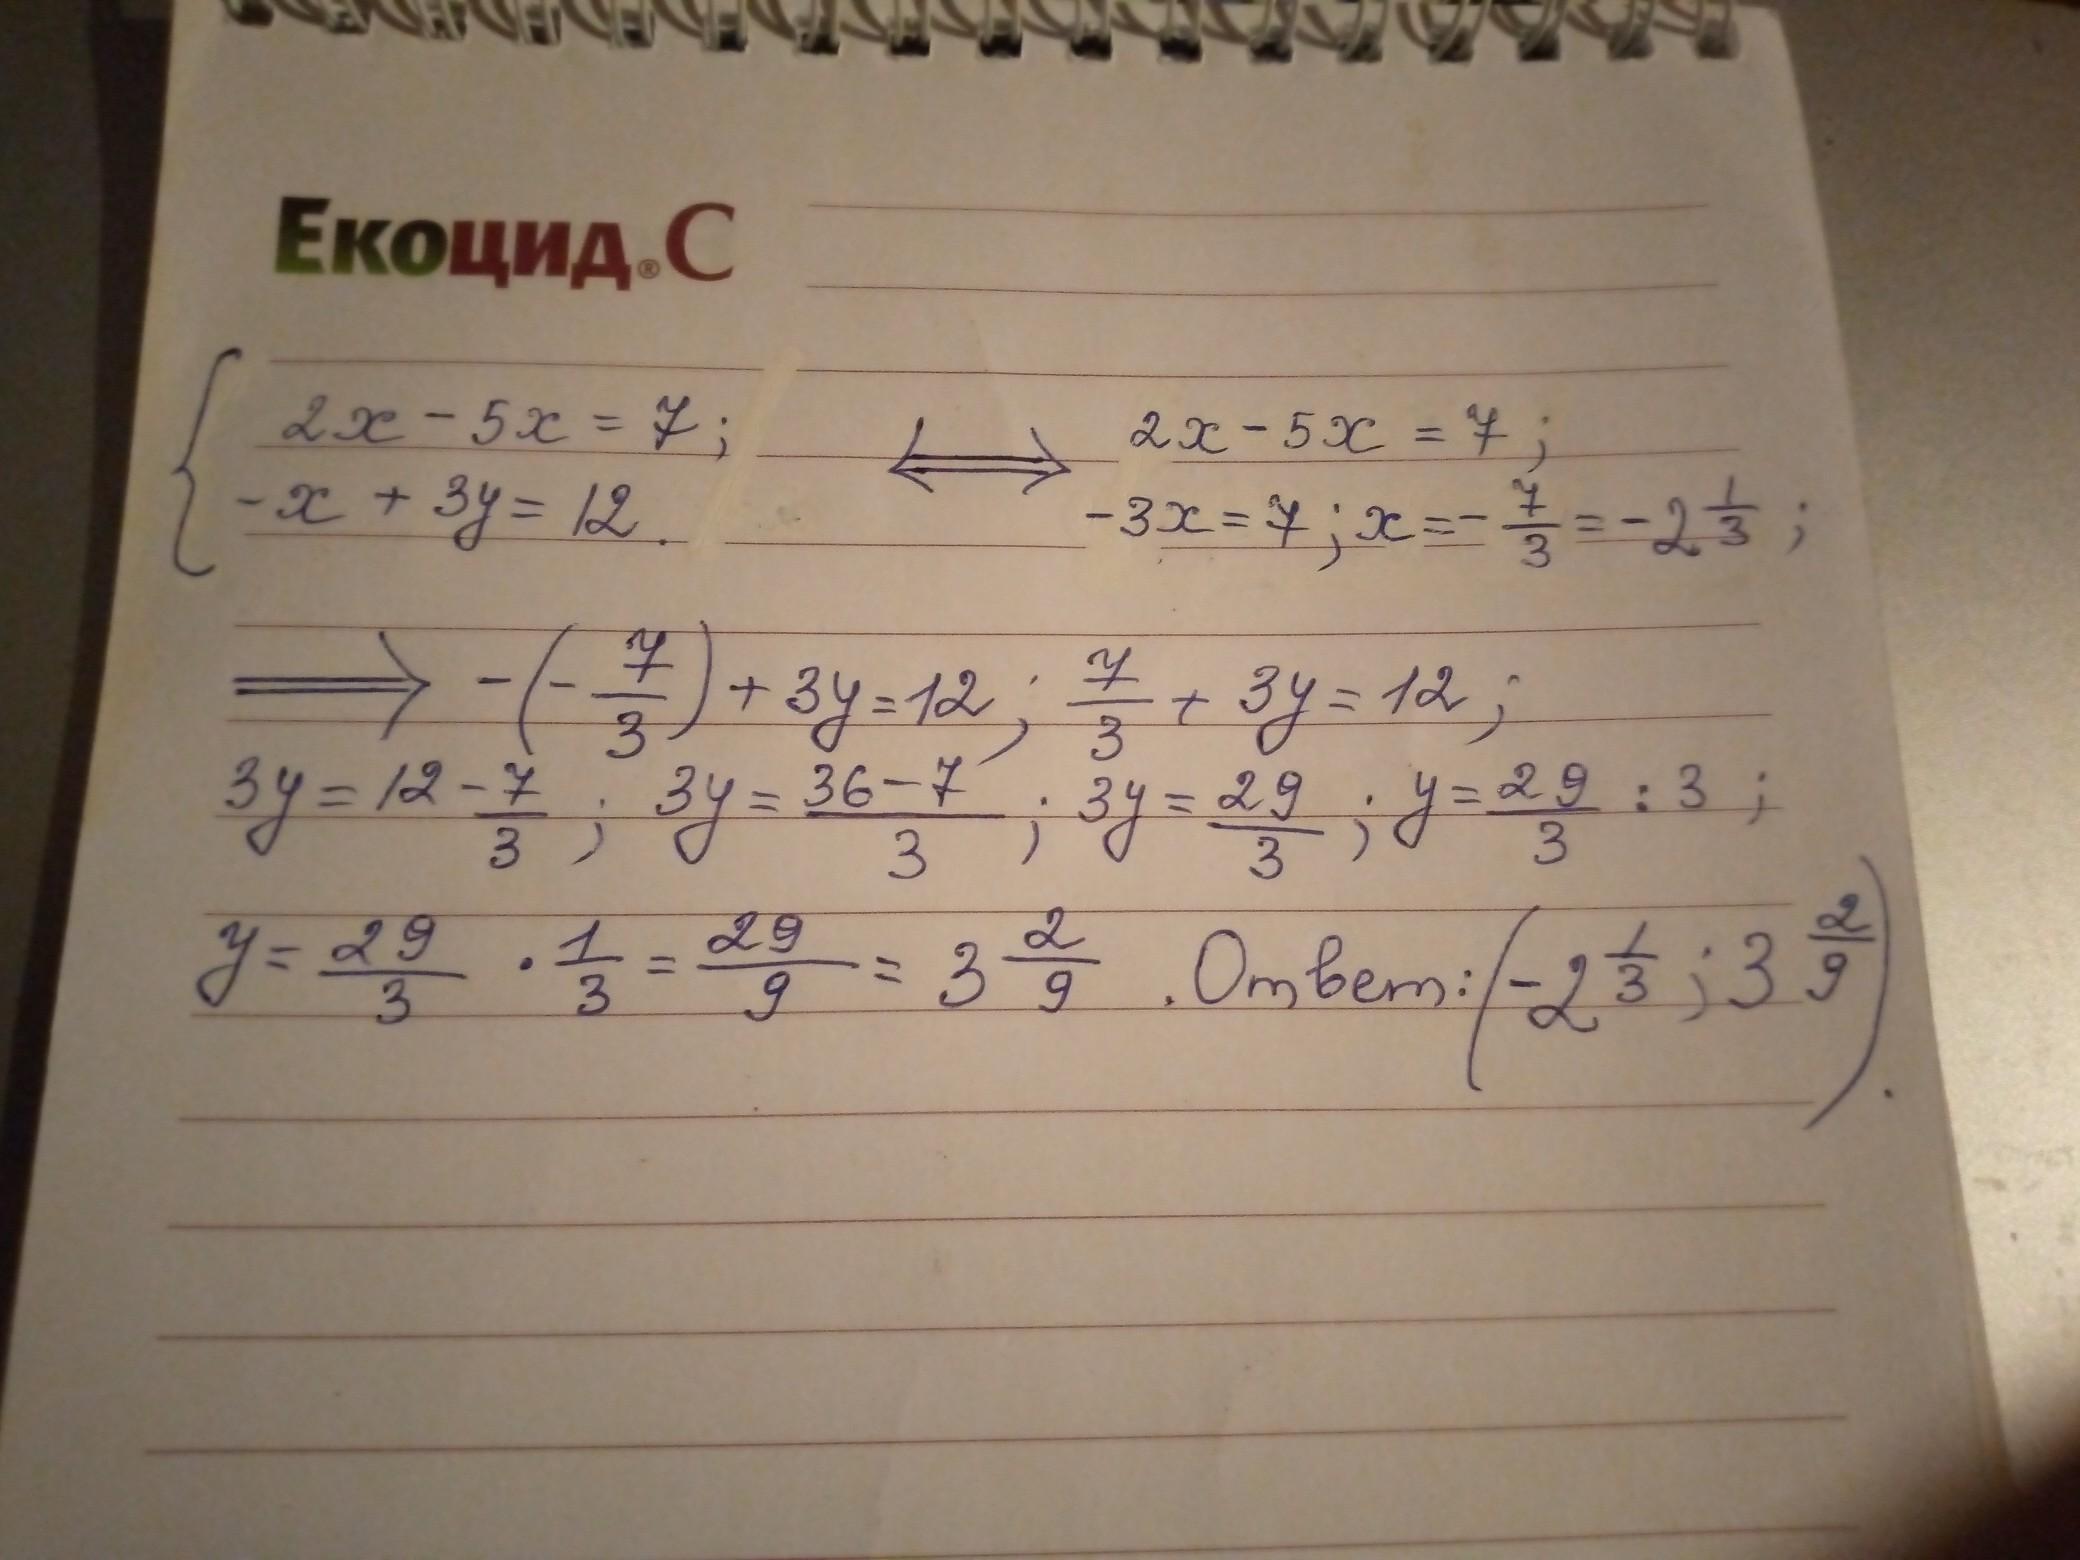 Екоцид® С
{ 2x - 5x = 7; ⟺ 2x - 5x = 7;
-x + 3y = 12. -3x = 7; x = -7/3 = -2 1/3;
⟹ -(-7/3) + 3y = 12; 7/3 + 3y = 12;
3y = 12 - 7/3; 3y = (36 - 7)/3; 3y = 29/3; y = 29/3 : 3;
y = 29/3 · 1/3 = 29/9 = 3 2/9. Ответ: (-2 1/3; 3 2/9).